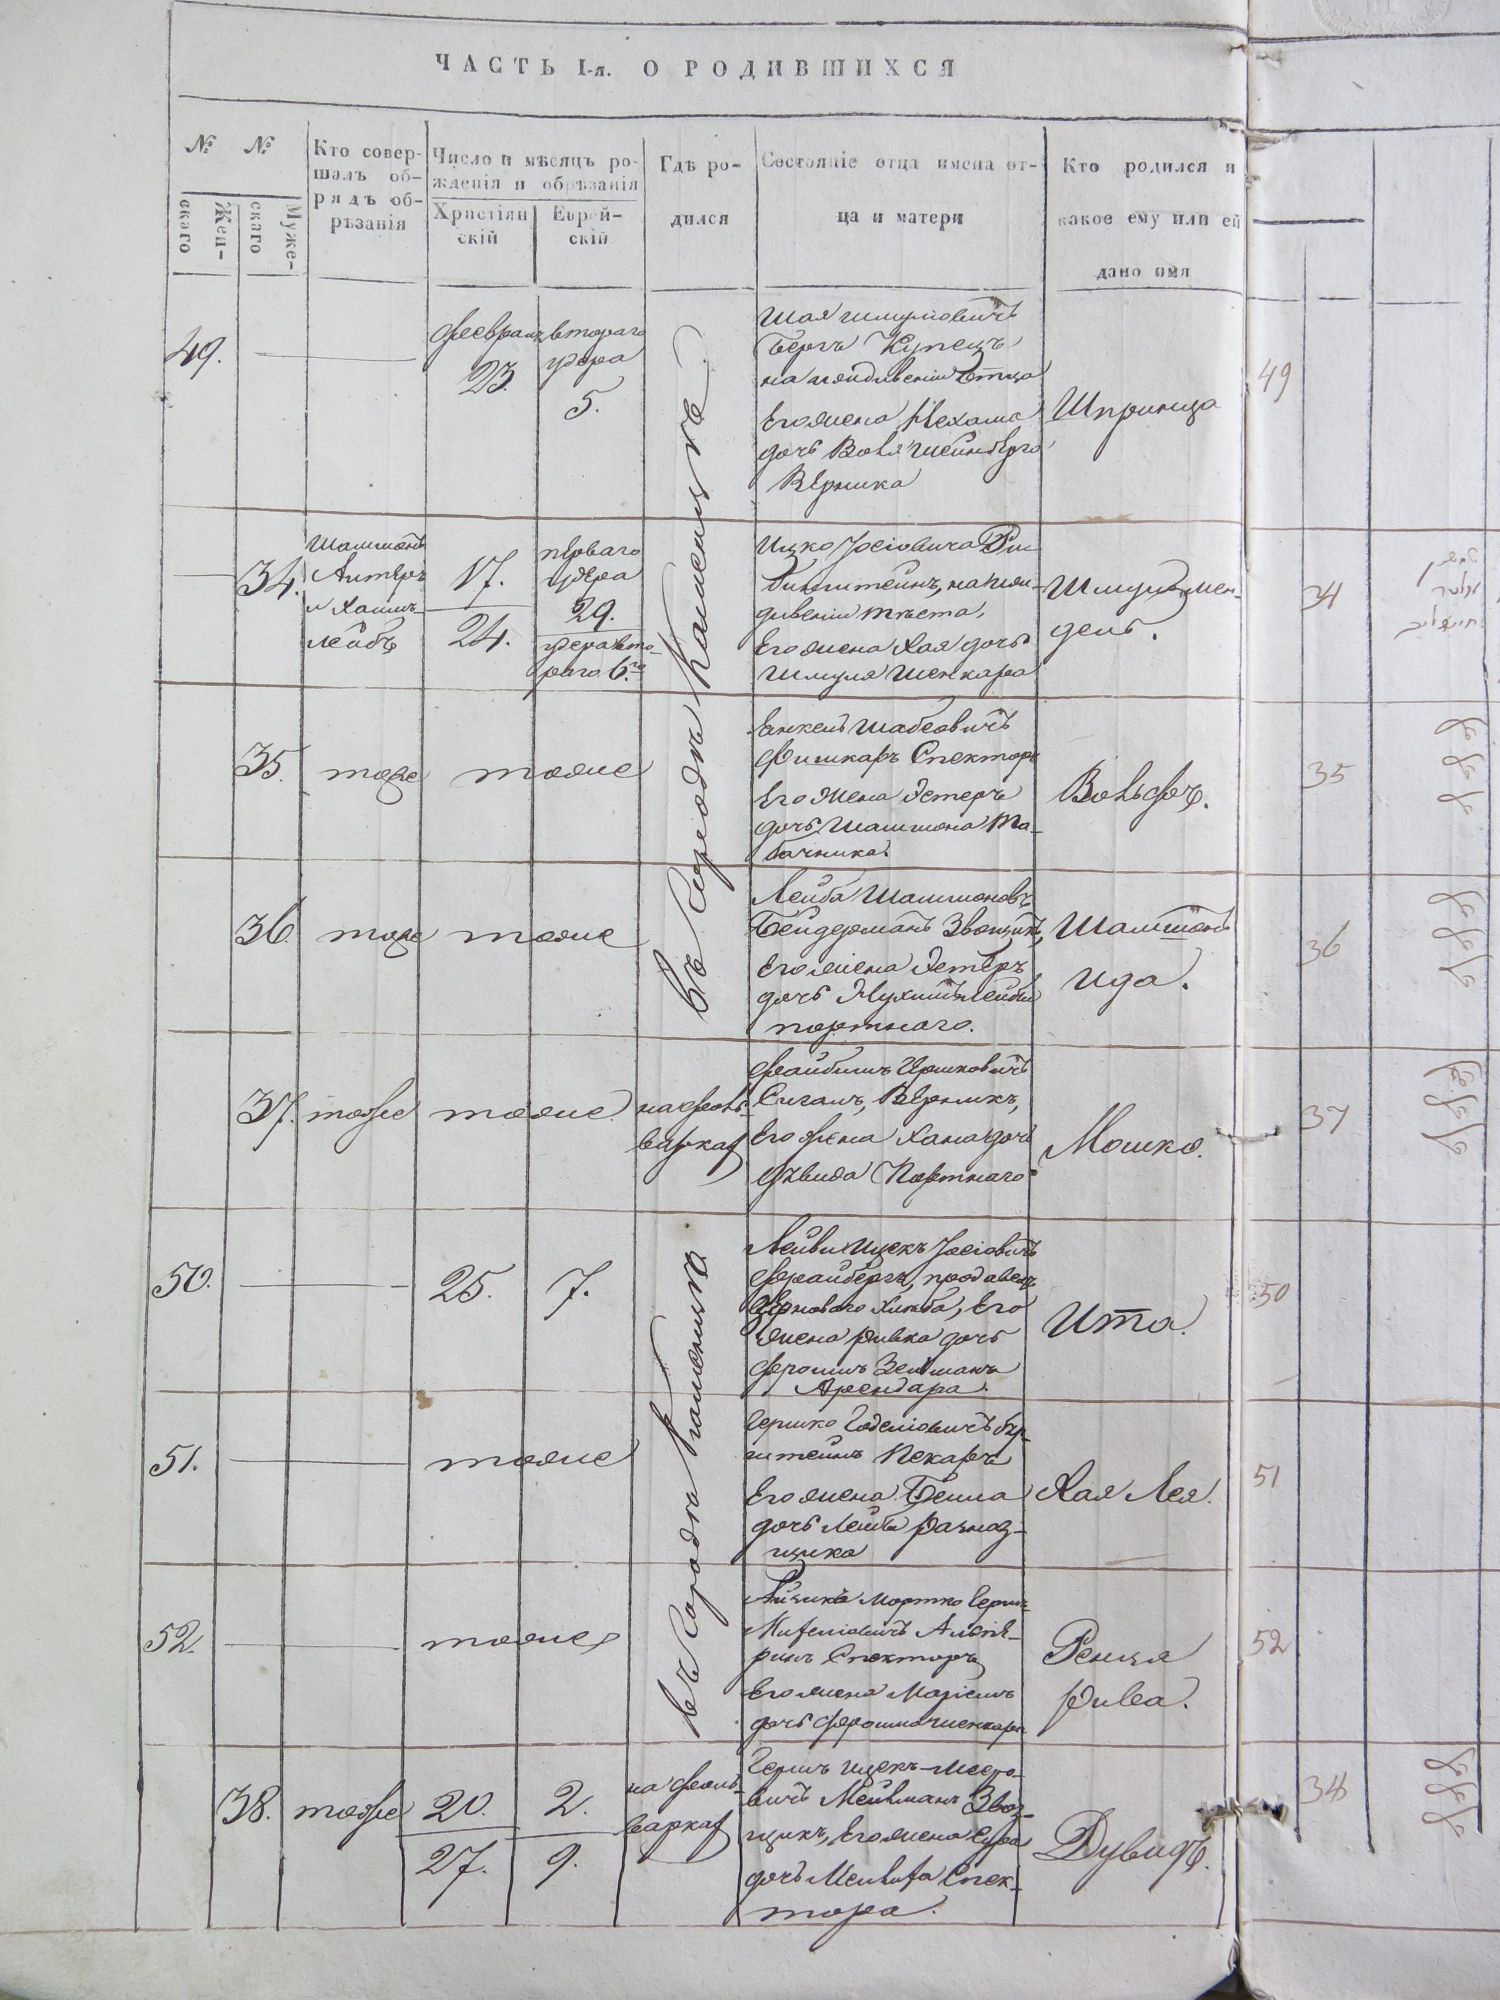 ЧАСТЬ I-я. О РОДИВШИХСЯ
№ Женскаго
№ Мужескаго
Кто совершалъ обрядъ обрѣзанія
Число и мѣсяцъ рожденія и обрѣзанія
Христіянскій
Еврейскій
Гдѣ родился
Состояніе отца имена отца и матери
Кто родился и какое ему или ей дано имя
49.
февраля
23.
втораго
удера
5.
въ Городѣ Каменицѣ
Шая Шмулiовичъ
Бергъ Купецъ
на иждивеніи Отца
Его жена Нехама
дочь Вовя Шейнберга
Верника
Шпринца
49
34.
Шамшонъ
Алтеръ
и Хаимъ
лейбъ
17.
24.
перваго
удера
29.
удера вто-
раго 6го
Ицко Іосіовича
бинштейнъ, на ижи-
дивеніи тестя,
Его жена Хая дочь
Шмуля Шенкара
Шмуль Мен-
дель.
34
35.
тоже
тоже
Янкель Шабсовичъ
Фишкаръ Спекторъ
Его жена Эстеръ
дочь Шамшона Та-
бачника.
Вольфъ.
35
36.
тоже
тоже
Лейба Шамшоновъ
Бейдерманъ Звощикъ,
Его жена Эстеръ
дочь Лейбы
портнаго.
Шамшонъ
Ида.
36
37.
тоже
тоже
на фоль-
варках
Файбишъ Гершковичъ
Сигалъ, Верникъ,
Его жена Хана дочь
Портнаго
Мошко.
37
50.
25.
7.
въ Городѣ Каменицѣ
Лейви Ицекъ Іосіовичъ
Фрайбергъ, продавецъ
Зерноваго хлѣба, Его
жена Ривка дочь
Фроимъ Зельмана
Арендара.
Ита.
50
51.
тоже
Гершко Годеліовичъ бур-
штейнъ Пекаръ
Его жена Бейла
дочь Лейбы Разноз-
щика
Хая Лея.
51
52.
тоже
Мортко Герш-
Альпе-
ринъ Спекторъ
Его жена Маріемъ
дочь Фроима Шенкара
Ренця
Рива.
52
38.
тоже
20.
27.
2.
9.
на фоль-
варках
Гершъ Ицекъ-Іосіо-
вичъ Мейльманъ Звоз-
щикъ, Его жена Сура
дочь Спек-
тора.
Дувидъ.
38